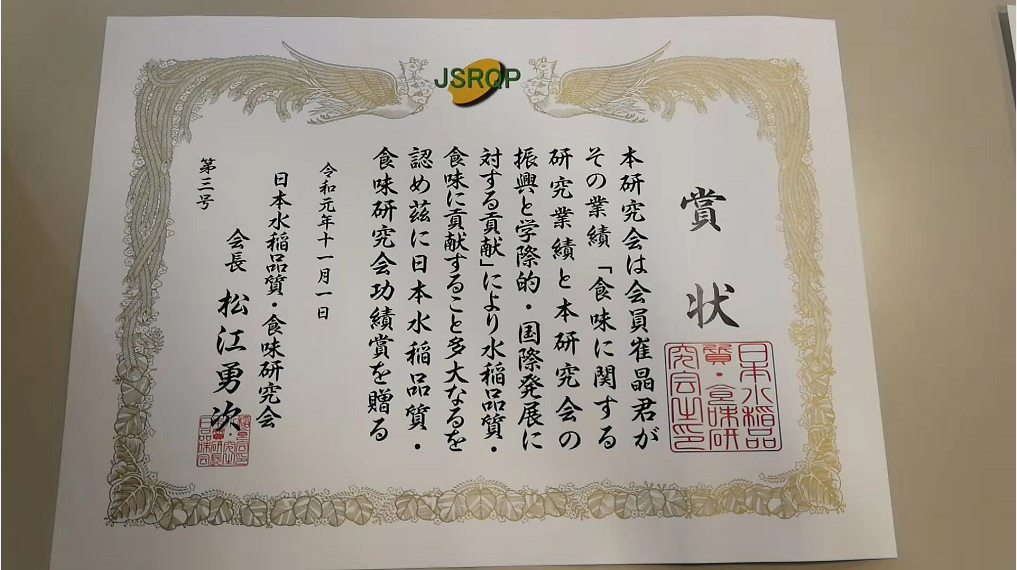 JSRQP
賞状
本研究会は会員崔晶君が
その業績「食味に関する
研究業績と本研究会の
振興と学際的・国際発展に
対する貢献」により水稲品質・
食味に貢献すること多大なるを
認め茲に日本水稲品質・
食味研究会功績賞を贈る
令和元年十一月一日
日本水稲品質・食味研究会
会長 松江勇次
第三号
日本水稲品
質・食味研
究会之印